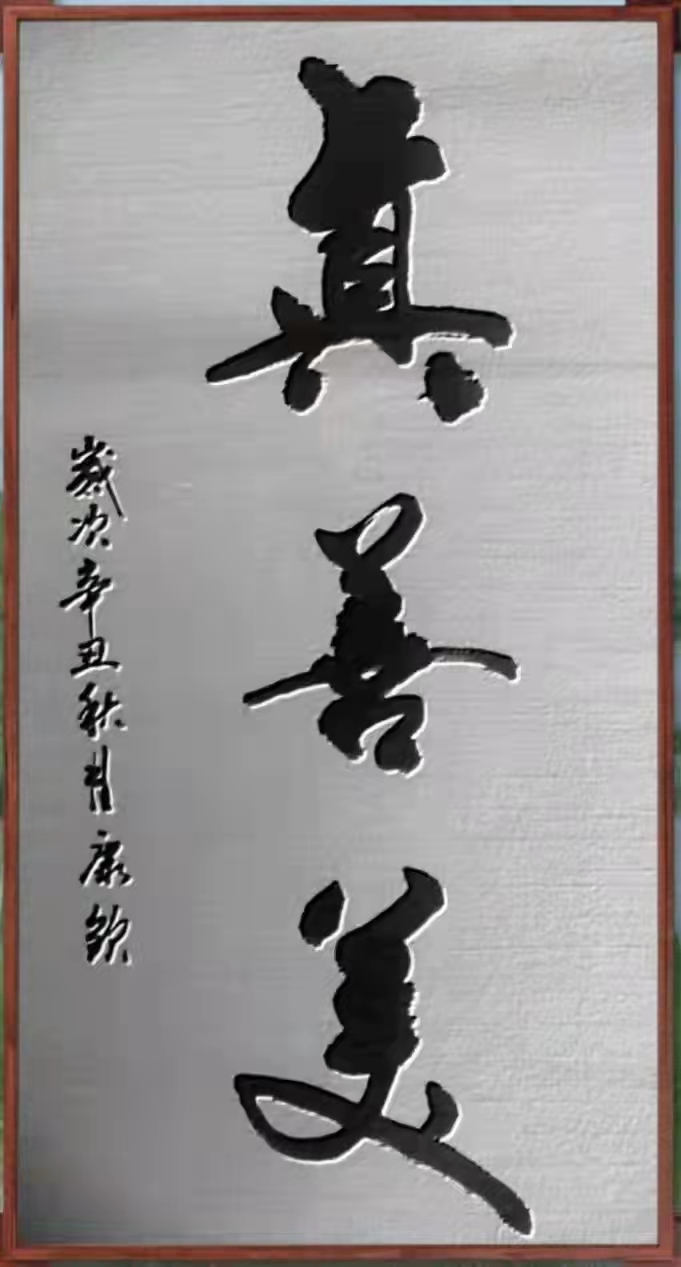 真善美
歲次辛丑秋月康欽